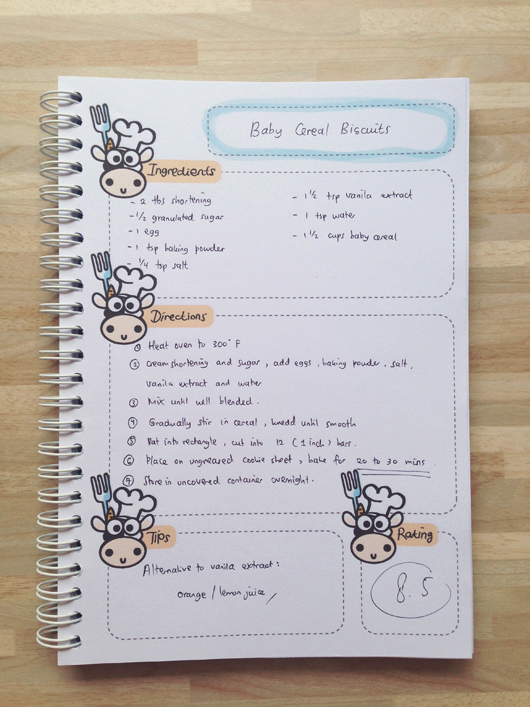 Baby Cereal Biscuits
Ingredients
- 2 tbs shortening
- 1/2 granulated sugar
- 1 egg
- 1 tsp baking powder
- 1/4 tsp salt
- 1 1/2 tsp vanila extract
- 1 tsp water
- 1 1/2 cups baby cereal
Directions
① Heat oven to 300° F
② Cream shortening and sugar, add eggs, baking powder, salt,
vanila extract and water
③ Mix until well blended.
④ Gradually stir in cereal, knead until smooth
⑤ Pat into rectangle, cut into 12 (1 inch) bars.
⑥ Place on ungreased cookie sheet, bake for 20 to 30 mins
⑦ Store in uncovered container overnight.
Tips
Alternative to vanila extract:
orange / lemon juice
Rating
8.5